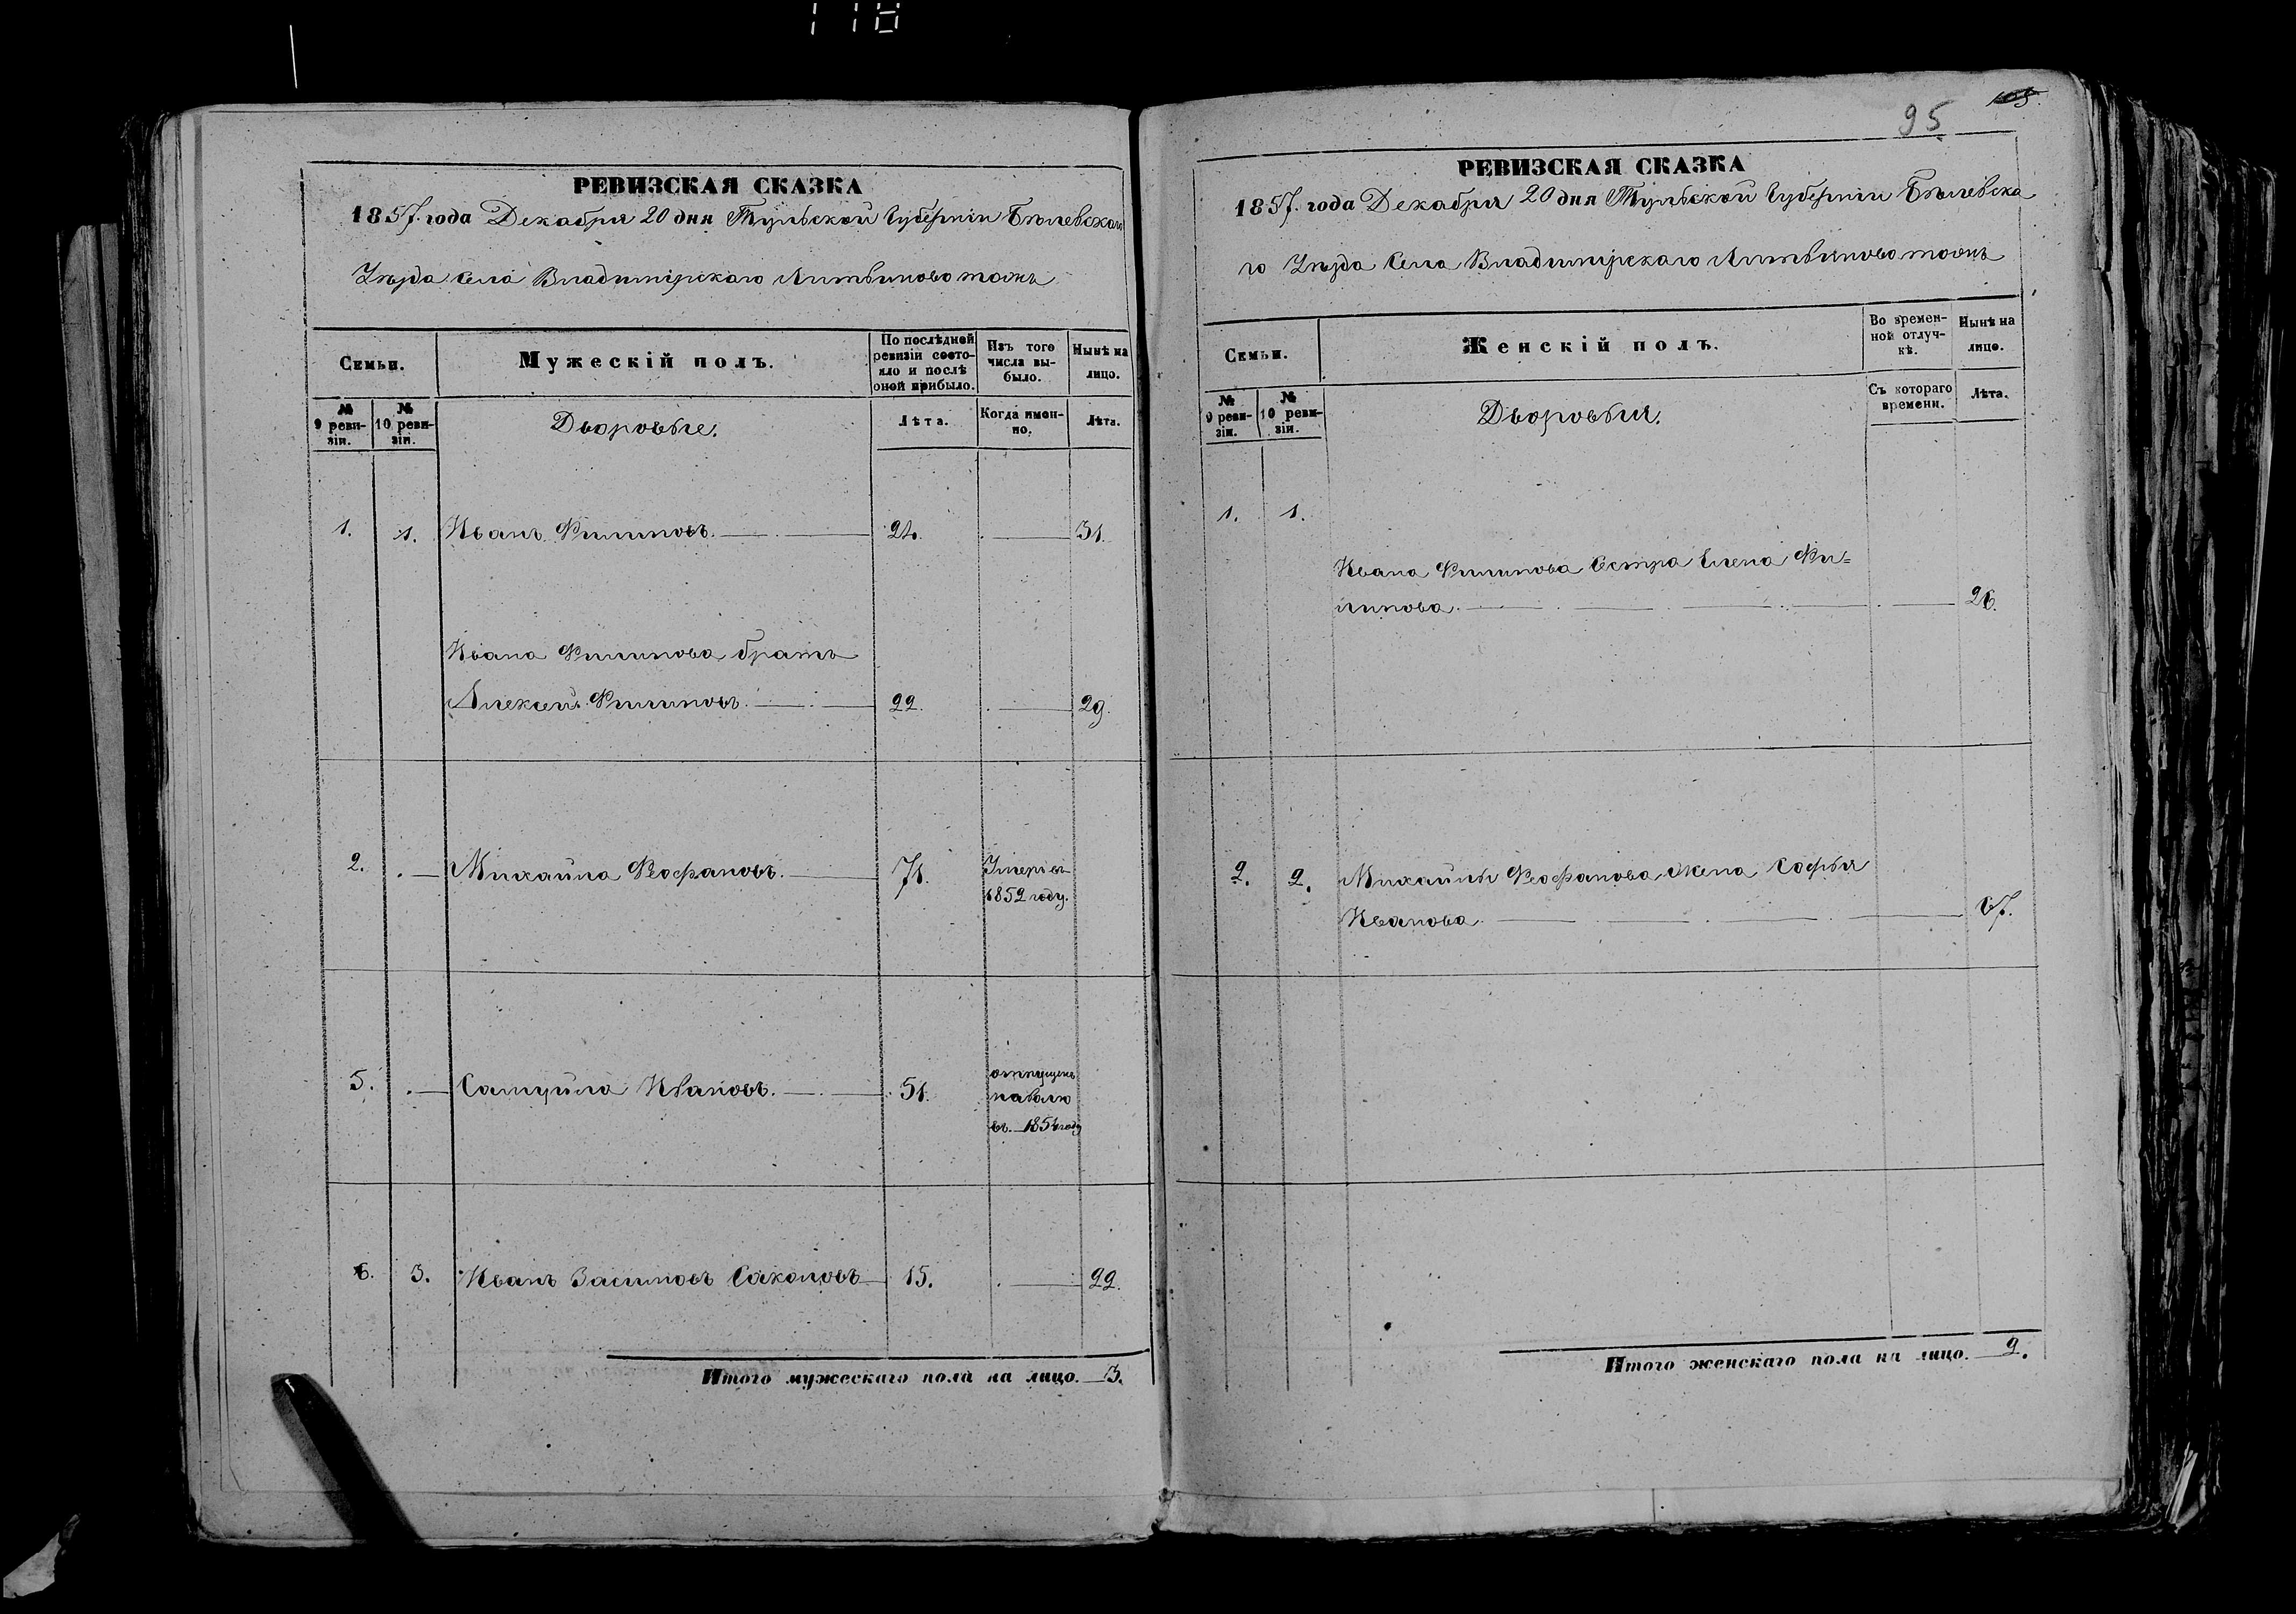 118
РЕВИЗСКАЯ СКАЗКА
1857. года Декабря 20 дня Тульской Губерніи Бѣлевскаго
Уѣзда Села Владимірскаго Литвиново тожъ
Семьи.
Мужескій полъ.
По послѣдней ревизіи состояло и послѣ оной прибыло.
Изъ того числа выбыло.
Нынѣ на лицо.
№ 9 ревизіи.
№ 10 ревизіи.
Дворовые.
Лѣта.
Когда именно.
Лѣта.
1. 1. Иванъ Филиповъ. 24. 31.
Ивана Филипова братъ
Алексей Филиповъ. 22. 29.
2. Михайла Феофановъ. 71. Умеръ въ
1852 году.
5. Самуйла Ивановъ. 51. отпущенъ
наволю
въ 1854 году
6. 3. Иванъ Засимовъ 15. 22.
Итого мужескаго пола на лицо. 3.
95
105.
РЕВИЗСКАЯ СКАЗКА
1857. года Декабря 20 дня Тульской Губерніи Бѣлевска
го Уѣзда Села Владимірскаго Литвиново тожъ
Семьи.
Женскій полъ.
Во временной отлучкѣ.
Нынѣ на лицо.
№ 9 ревизіи.
№ 10 ревизіи.
Дворовыя.
Съ котораго времени.
Лѣта.
1. 1.
Ивана Филипова Сестра Елена Фи=
липова. 26.
2. 2. Михайлы Феофанова жена Софья
Иванова. 67.
Итого женскаго пола на лицо. 2.